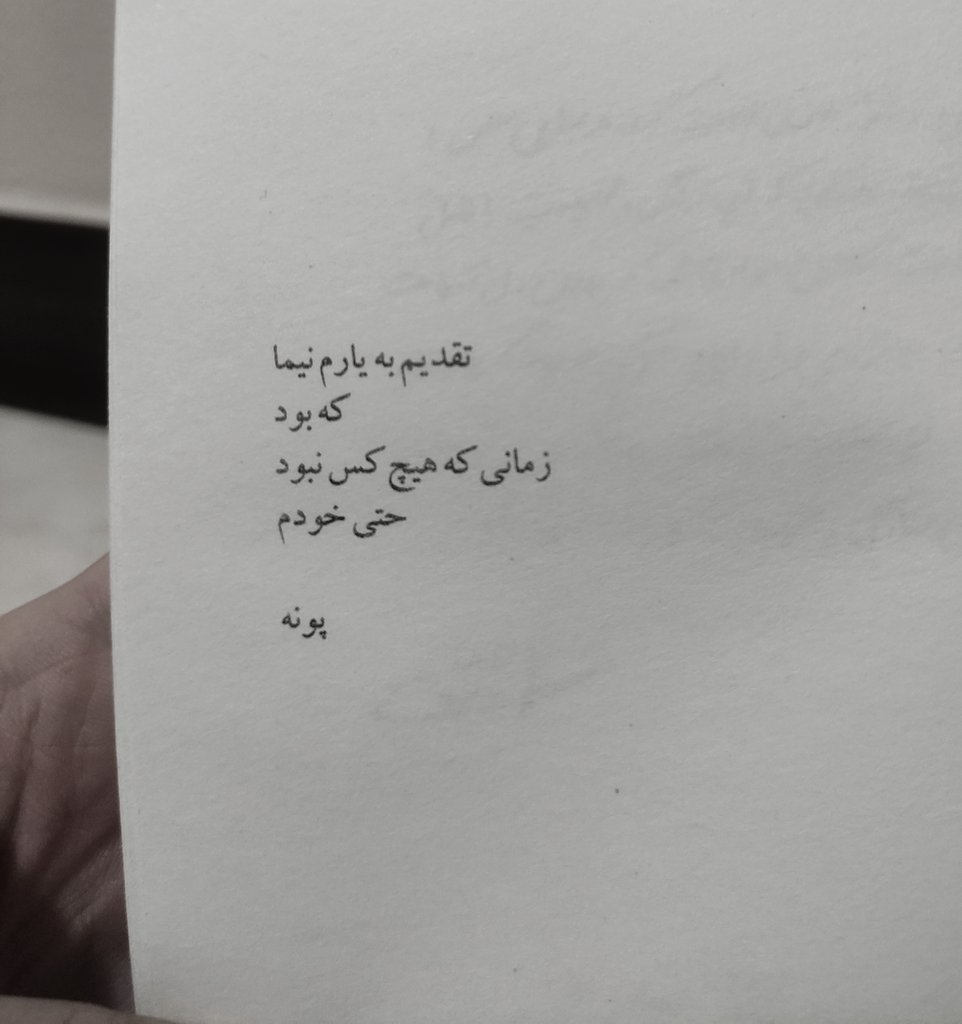 تقدیم به یارم نیما
که بود
زمانی که هیچ کس نبود
حتی خودم
پونه